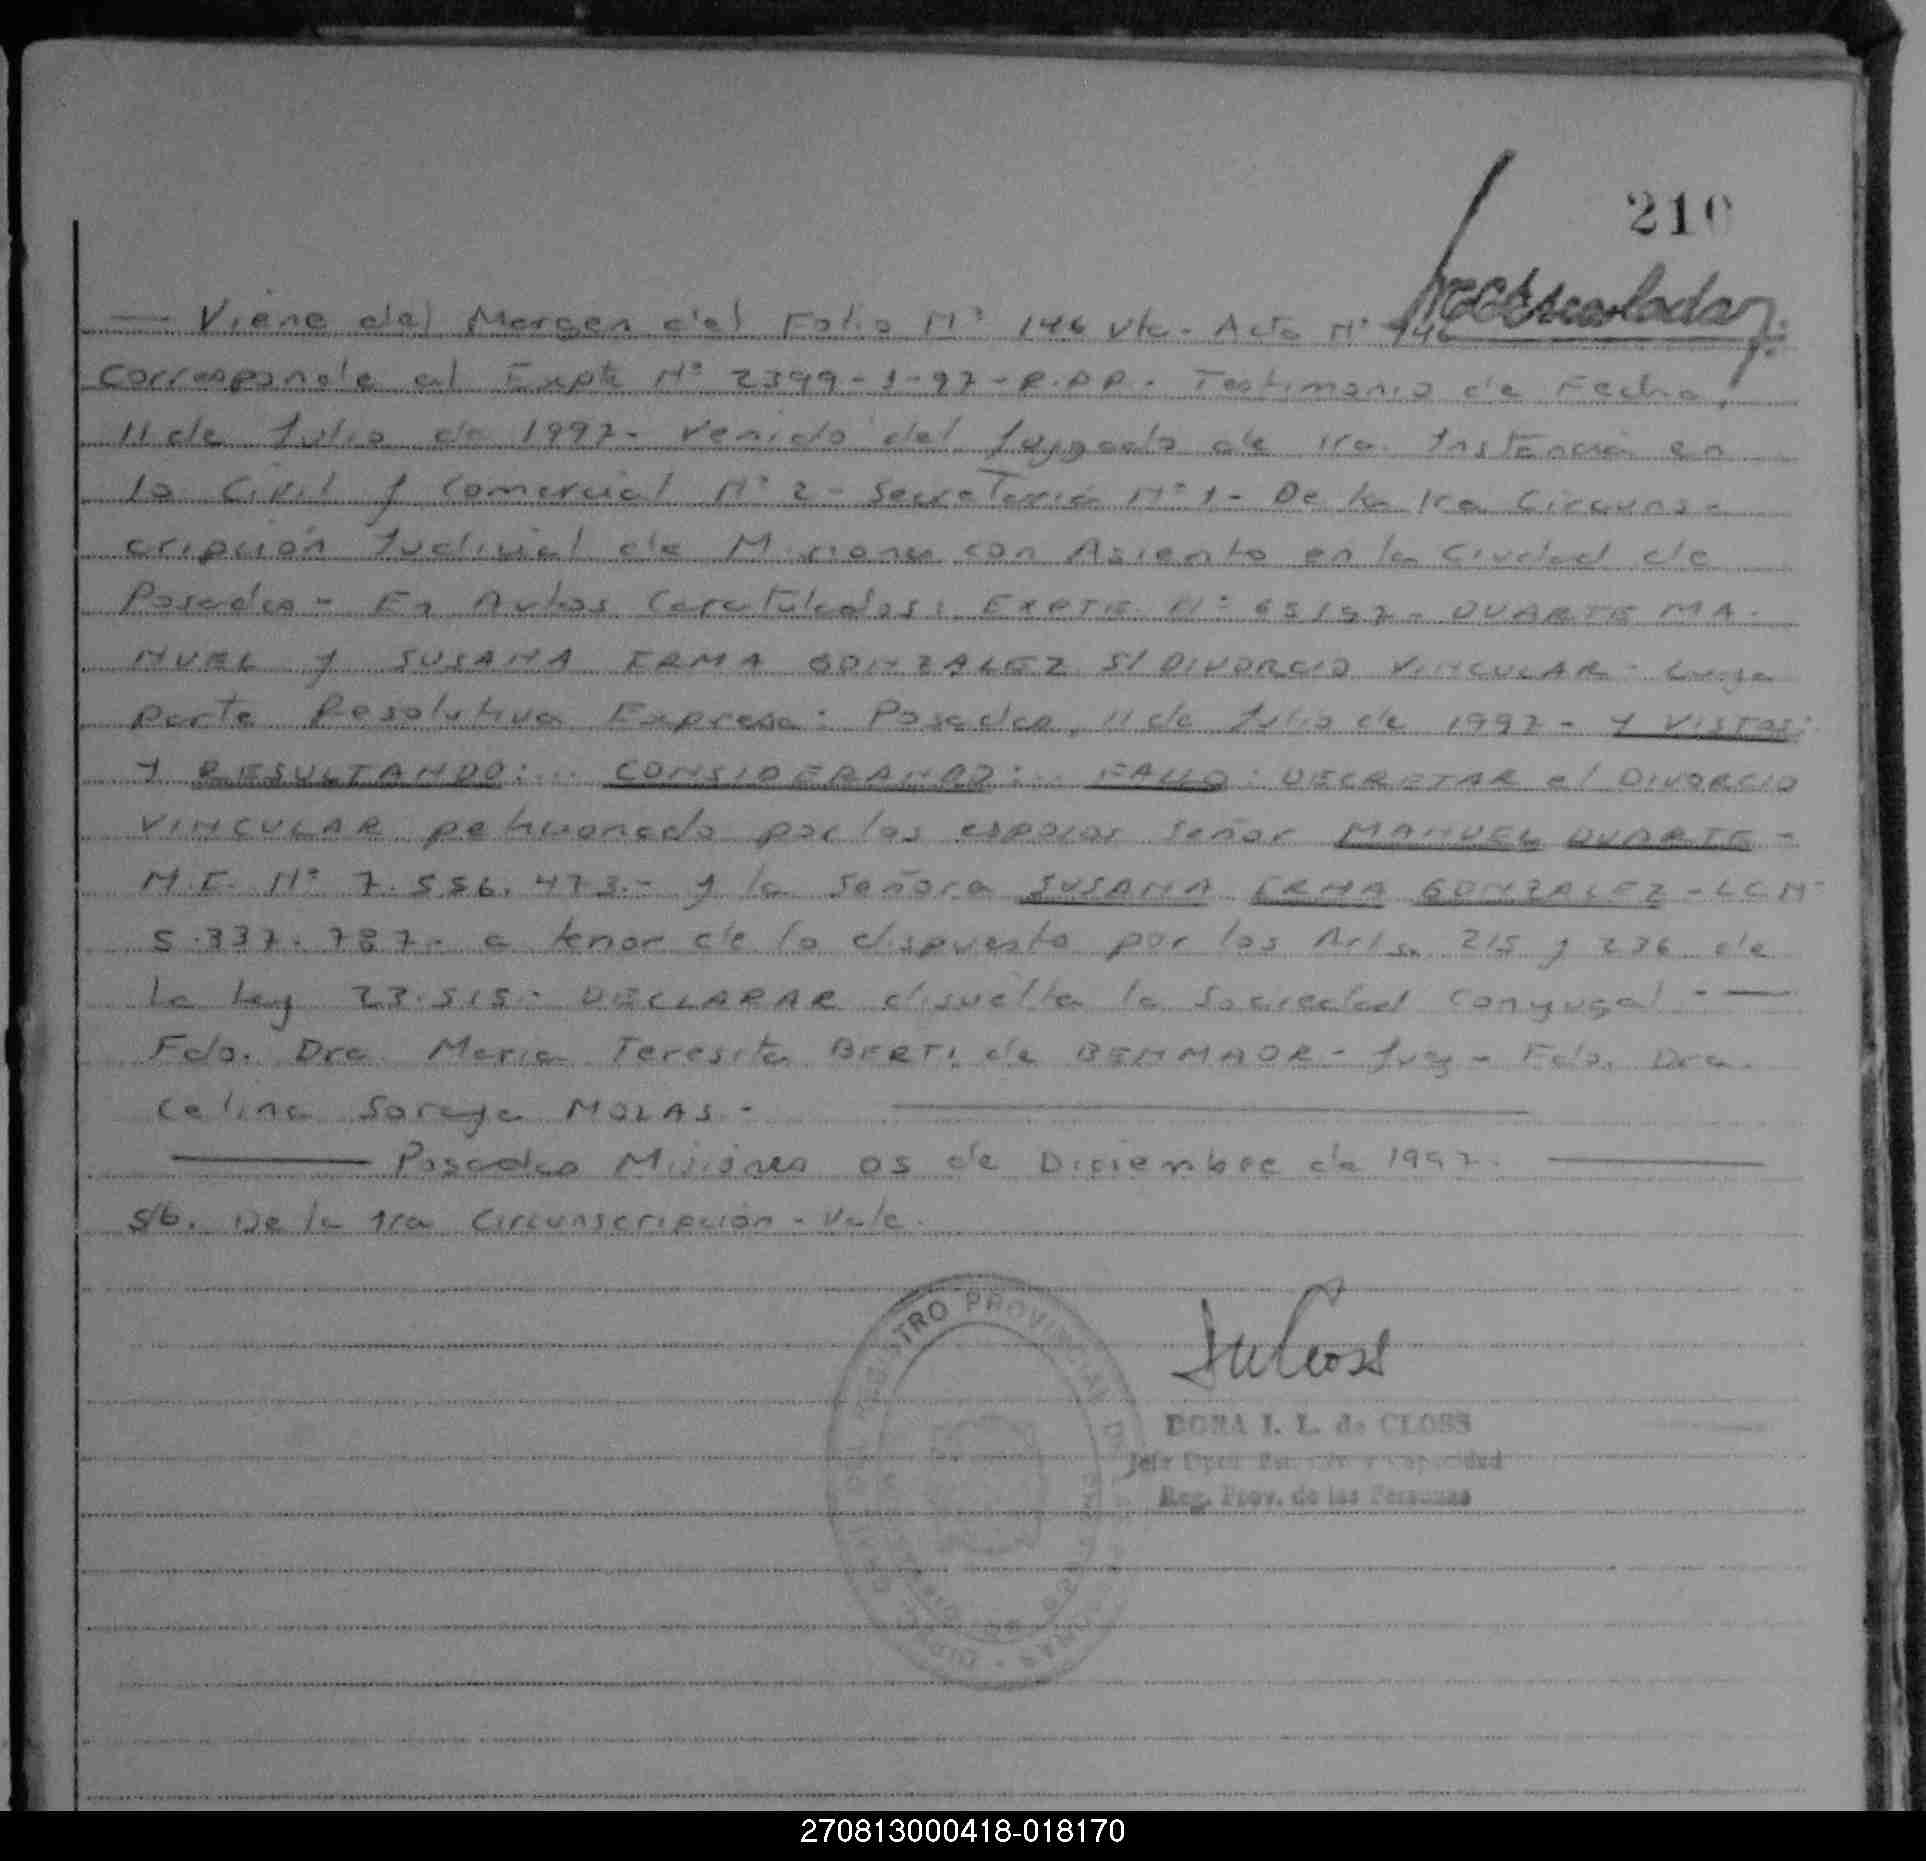 210
— Viene del Margen del Folio Nº 146 Vto. Acta Nº 146
corresponde al Expte Nº 2399-1-97-R.P.P. Testimonio de Fecha,
11 de Julio de 1997- Venido del Juzgado de 1ra. Instancia en
lo Civil y Comercial Nº 2 - Secretaría Nº 1 - De la 1ra Circuns-
cripción Judicial de Misiones con Asiento en la Ciudad de
Posadas - En Autos Caratulados: EXPTE. Nº 65/97 - DUARTE MA-
NUEL y SUSANA ERMA GONZALEZ S/ DIVORCIO VINCULAR - Cuya
parte Resolutiva Expresa: Posadas, 11 de Julio de 1997 - Y VISTOS:
Y RESULTANDO:... CONSIDERANDO:... FALLO: DECRETAR el DIVORCIO
VINCULAR peticionado por los esposos señor MANUEL DUARTE -
M.I. Nº 7.556.473.- y la Señora SUSANA ERMA GONZALEZ - L.C. Nº
5.337.787.- a tenor de lo dispuesto por los Arts. 215 y 236 de
la Ley 23.515.- DECLARAR disuelta la Sociedad Conyugal. - —
Fdo. Dra. Maria Teresita BERTI de BENMAOR - Juez - Fdo. Dra.
Celina Soraya MOLAS -
— Posadas Misiones 05 de Diciembre de 1997. —
S/b. De la 1ra Circunscripción - Vale.
REGISTRO PROVINCIAL DE
DORA I. L. de CLOSS
Jefe Dpto. y Capacidad
Reg. Prov. de las Personas
270813000418-018170